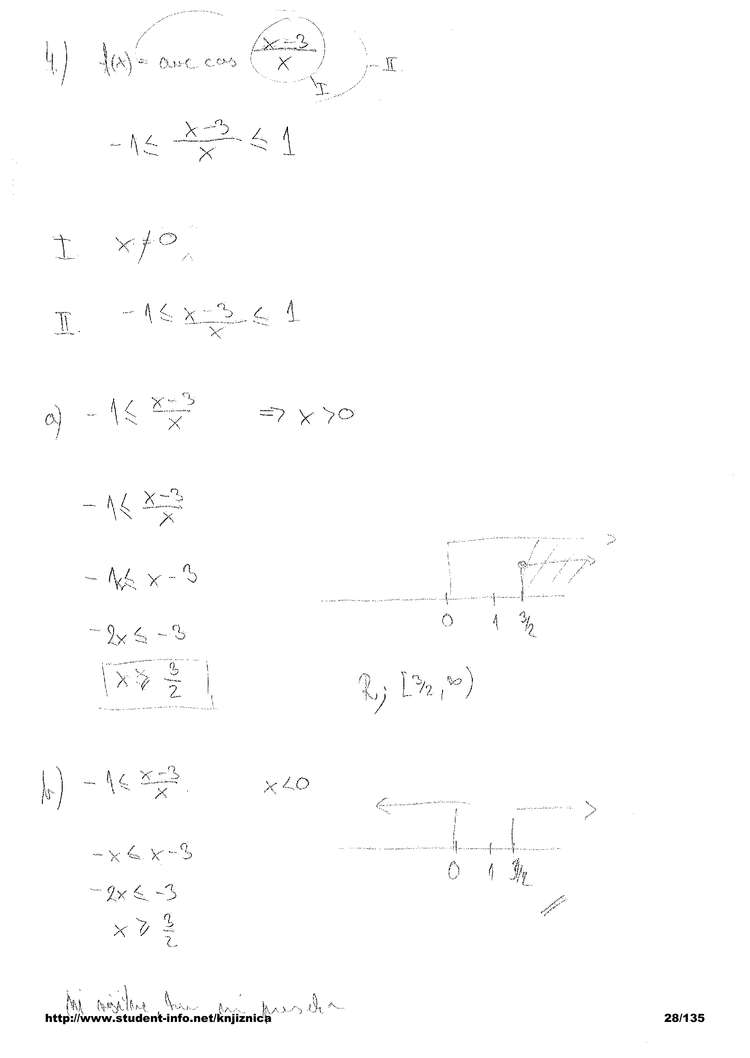 4.) f(x) = arc cos (x-3)/x - II
I
-1 ≤ (x-3)/x ≤ 1
I x ≠ 0
II. -1 ≤ (x-3)/x ≤ 1
a) -1 ≤ (x-3)/x ⇒ x > 0
-1 ≤ (x-3)/x
-1x ≤ x - 3
-2x ≤ -3
x ≥ 3/2
0 1 3/2
R; [3/2, ∞)
b) -1 ≤ (x-3)/x x < 0
-x ≤ x - 3
-2x ≤ -3
x ≥ 3/2
0 1 3/2
ni
http://www.student-info.net/knjiznica 28/135